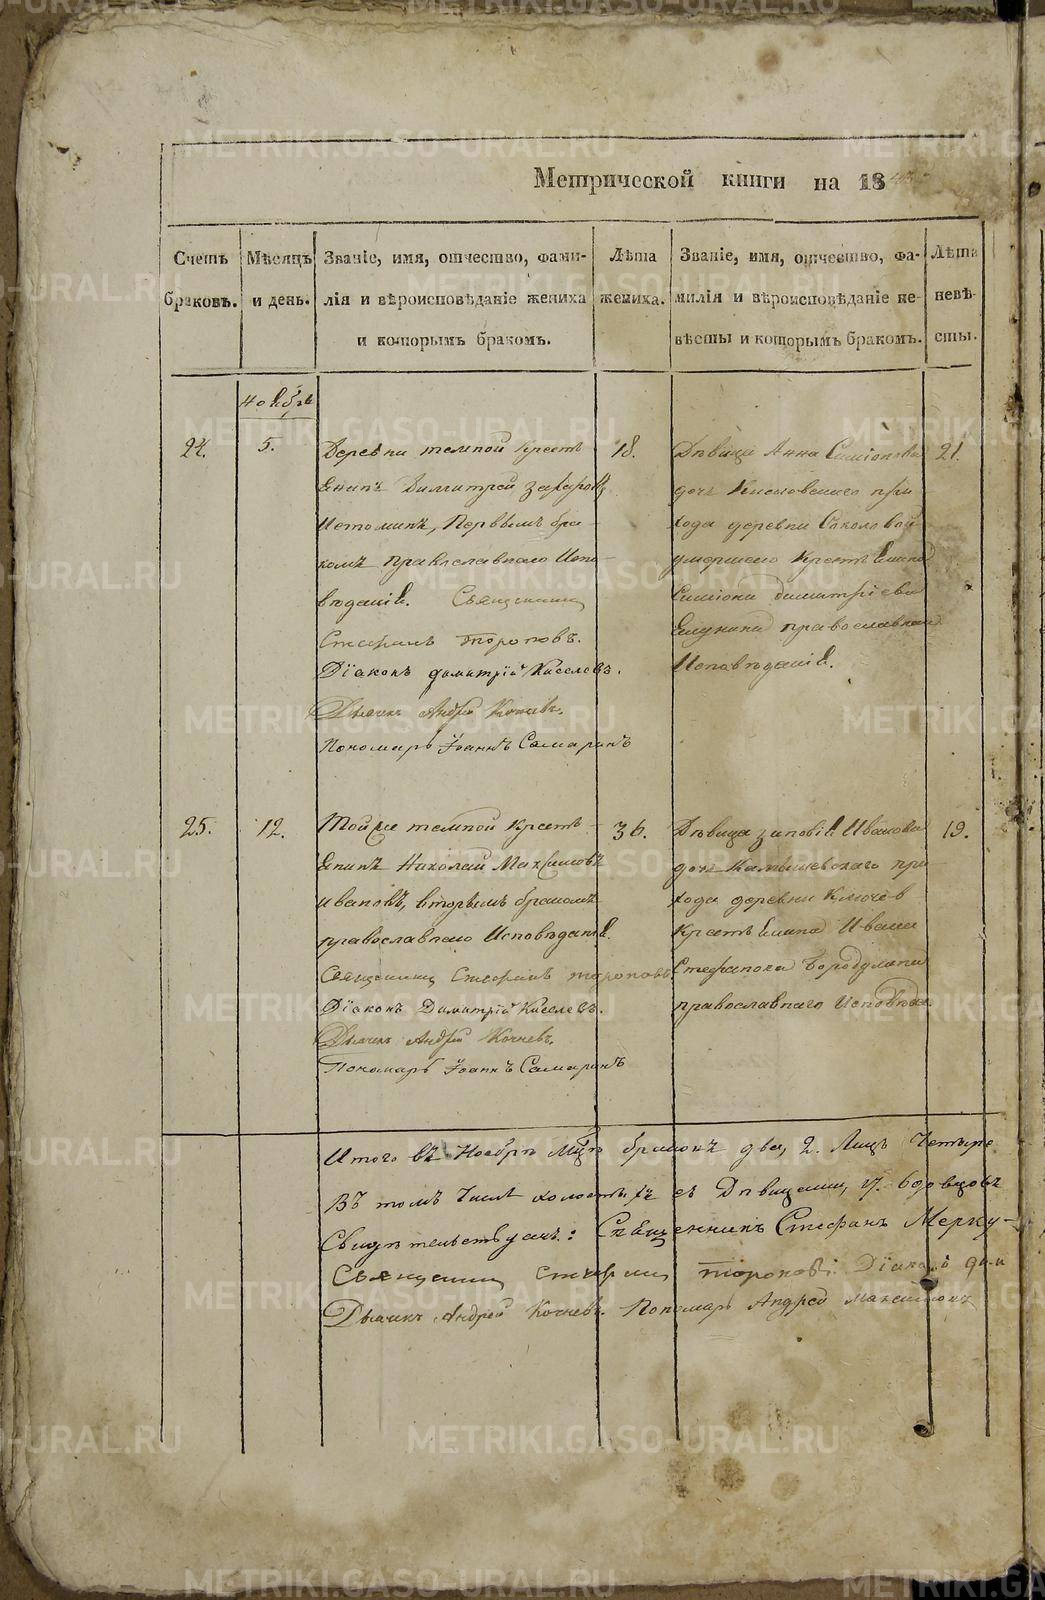 Метрической книги на 18
Счетъ браковъ.
Мѣсяцъ и день.
Званіе, имя, отчество, фами-
лія и вѣроисповѣданіе жениха
и которымъ бракомъ.
Лѣта
жениха.
Званіе, имя, отчество, фа-
милія и вѣроисповѣданіе не-
вѣсты и которымъ бракомъ.
Лѣта
невѣ-
сты.
Ноябрь
24.
5.
Деревни темной крестъ
янинъ Димитрей Захаровъ
Истоминъ, Первымъ бра-
комъ православнаго Испо-
вѣданія. Священникъ
Стефанъ Тороповъ.
Діаконъ Димитрій Киселевъ.
Дьячикъ Андрей Кочневъ.
Пономарь Іоаннъ Самаринъ
18.
Дѣвица Анна Симіонова
дочь при-
хода деревни Соколовой
умершаго крестьянина
Симіона Димитріева
православнаго
Исповѣданія.
21.
25.
12.
Той же темной крестъ-
янинъ Николай Максимовъ
Ивановъ, вторымъ бракомъ
православнаго Исповѣданія.
Священникъ Стефанъ Тороповъ
Діаконъ Димитрій Киселевъ.
Дьячикъ Андрей Кочневъ.
Пономарь Іоаннъ Самаринъ
36.
Дѣвица Зиновія Иванова
дочь Камышевскаго при-
хода деревни Ключей
крестьянина Ивана
Стефанова Бородулина
православнаго Исповѣдан.
19.
Итого въ Ноябрѣ Мцѣ браковъ два, 2. Лицъ Четыре
Въ томъ числѣ холостыхъ съ Дѣвицами, вдовцовъ
Свидѣтельствуемъ: Священникъ Стефанъ Мерку-
Священникъ Стефанъ Тороповъ. Діаконъ Ди-
Дьячикъ Андрей Кочневъ. Пономарь Андрей
METRIKI.GASO-URAL.RU